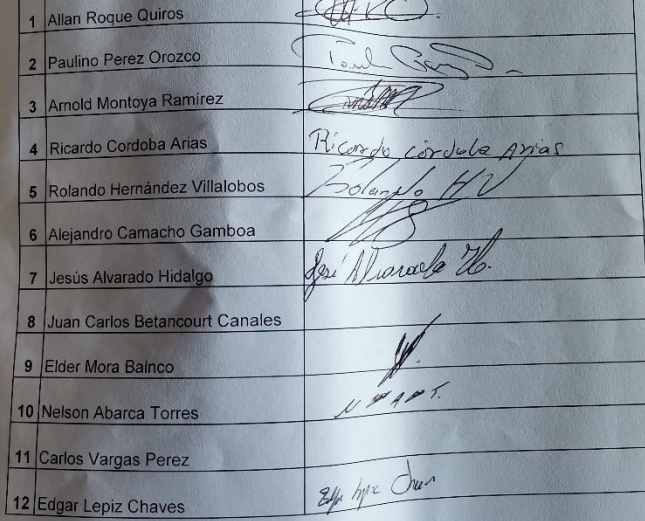 1 Allan Roque Quiros
2 Paulino Perez Orozco
3 Arnold Montoya Ramirez
4 Ricardo Cordoba Arias Ricardo córdoba Arias
5 Rolando Hernández Villalobos Rolando HV
6 Alejandro Camacho Gamboa
7 Jesús Alvarado Hidalgo José Alvarado H.
8 Juan Carlos Betancourt Canales
9 Elder Mora Balnco
10 Nelson Abarca Torres
11 Carlos Vargas Perez
12 Edgar Lepiz Chaves